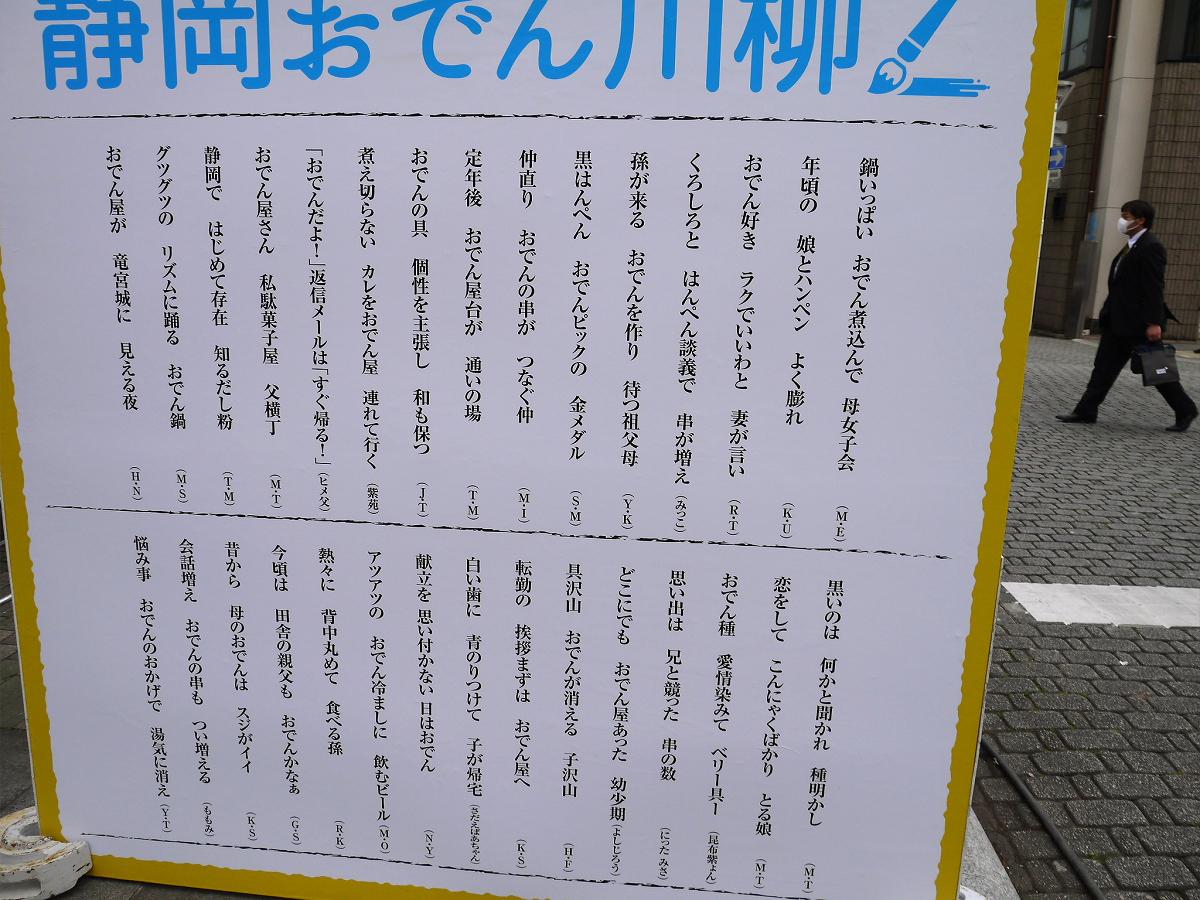 静岡おでん川柳
鍋いっぱい おでん煮込んで 母女子会 (M・E)
年頃の 娘とハンペン よく膨れ (K・U)
おでん好き ラクでいいわと 妻が言い (R・T)
くろしろと はんぺん談義で 串が増え (みっこ)
孫が来る おでんを作り 待つ祖父母 (Y・K)
黒はんぺん おでんピックの 金メダル (S・M)
仲直り おでんの串が つなぐ仲 (M・I)
定年後 おでん屋台が 通いの場 (T・M)
おでんの具 個性を主張し 和も保つ (J・T)
煮え切らない カレをおでん屋 連れて行く (紫苑)
「おでんだよ!」返信メールは「すぐ帰る!」 (ヒメ父)
おでん屋さん 私駄菓子屋 父横丁 (M・T)
静岡で はじめて存在 知るだし粉 (T・M)
グツグツの リズムに踊る おでん鍋 (M・S)
おでん屋が 竜宮城に 見える夜 (H・N)
黒いのは 何かと聞かれ 種明かし (M・T)
恋をして こんにゃくばかり とる娘 (M・T)
おでん種 愛情染みて ベリー具ー (昆布紫ょん)
思い出は 兄と競った 串の数 (にった みさ)
どこにでも おでん屋あった 幼少期 (よしじろう)
具沢山 おでんが消える 子沢山 (H・F)
転勤の 挨拶まずは おでん屋へ (K・S)
白い歯に 青のりつけて 子が帰宅 (さだえばあちゃん)
献立を 思い付かない 日はおでん (N・Y)
アツアツの おでん冷ましに 飲むビール (M・O)
熱々に 背中丸めて 食べる孫 (R・K)
今頃は 田舎の親父も おでんかなぁ (G・S)
昔から 母のおでんは スジがイイ (K・S)
会話増え おでんの串も つい増える (ももみ)
悩み事 おでんのおかげで 湯気に消え (Y・T)